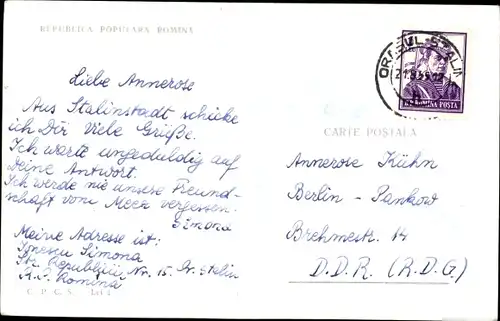 REPUBLICA POPULARA ROMINA
Liebe Annerose
Aus Stalinstadt schicke
ich Dir viele Grüße.
Ich warte ungeduldig auf
Deine Antwort.
Ich werde nie unsere Freund-
schaft vom Meer vergessen.
Simona
Meine Adresse ist:
Ionescu Simona
Str. Republicii Nr. 15. Or. Stalin
R.P. Romina
C. P. C. S.
ORAȘUL STALIN
POSTA
CARTE POȘTALA
Annerose Kühn
Berlin - Pankow
Brehmestr. 14
D.D.R. (R.D.G.)